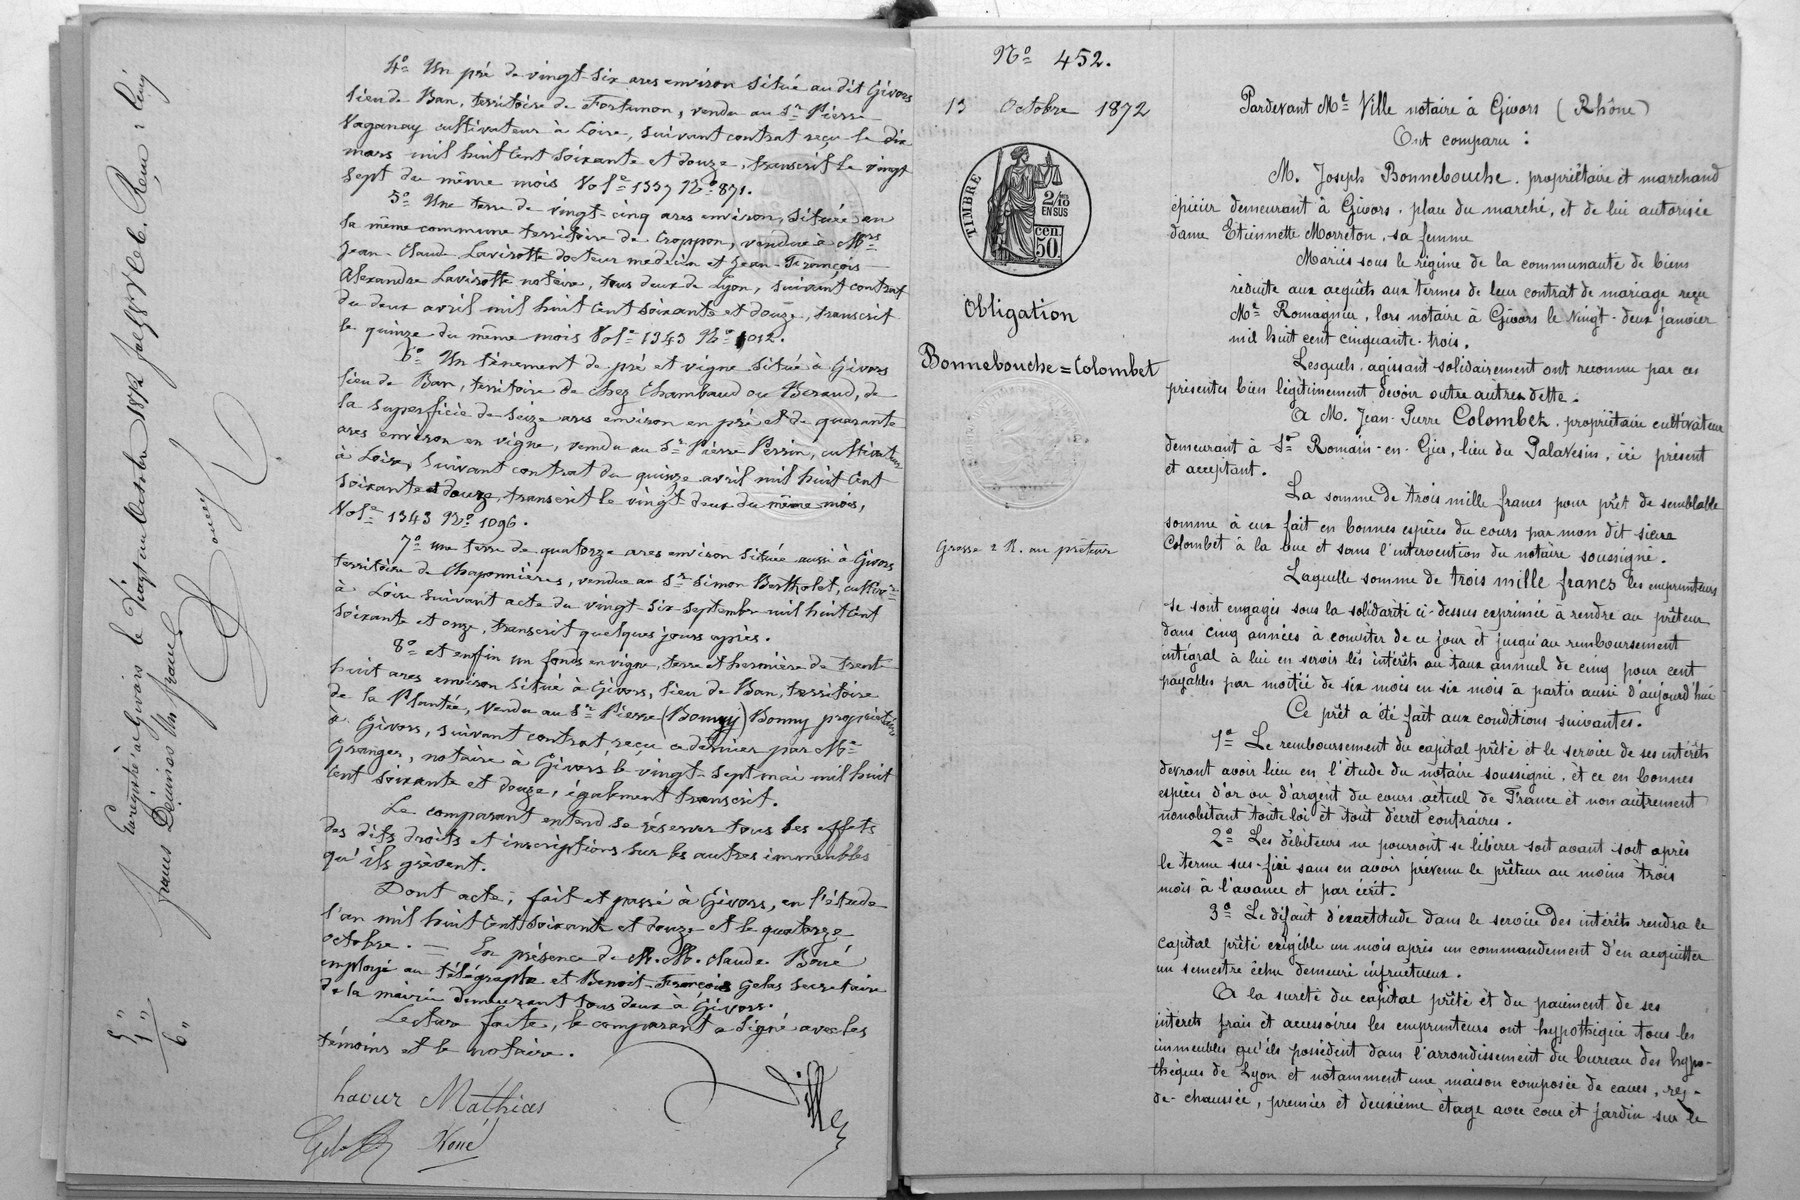 4° Un pré de vingt-six ares environ situé au dit Givors
lieu de Ban, territoire de Fortunon, vendu au Sr Pierre
Vaganay cultivateur à Loire, suivant contrat reçu le dix
mars mil huit cent soixante et douze, transcrit le vingt
sept du même mois Vole 1337 No 871.
5° Une terre de vingt-cinq ares environ, située en
la même commune territoire de Croppon, vendue à Mrs
Jean-Claude Lavirotte docteur medecin et Jean-François
Alexandre Lavirotte notaire, tous deux de Lyon, suivant contrat
du deux avril mil huit cent soixante et douze, transcrit
le quinze du même mois Vole 1343 No 1012.
6° Un tènement de pré et vigne situé à Givors
lieu de Ban, territoire de Chez Chambaud ou Beraud, de
la superficie de seize ares environ en pré et de quarante
ares environ en vigne, vendu au Sr Pierre Perrin, cultivateur
à Loire, suivant contrat du quinze avril mil huit cent
soixante et douze, transcrit le vingt deux du même mois,
Vole 1343 No 1096.
7° une terre de quatorze ares environ située aussi à Givors
territoire de Chaponnières, vendue au Sr Simon Bertholet, cultivr
à Loire suivant acte du vingt-six septembre mil huit cent
soixante et onze, transcrit quelques jours après.
8° et enfin un fonds en vigne, terre et hermière de trente
huit ares environ situé à Givors, lieu de Ban, territoire
de la Plantée, vendu au Sr Pierre (Bonnay) Bonny propriétaire
à Givors, suivant contrat reçu ce dernier par Me
Granger, notaire à Givors le vingt-sept mai mil huit
cent soixante et douze, également transcrit.
Le comparant entend se réserver tous les effets
des dits droits et inscriptions sur les autres immeubles
qu'ils grèvent.
Dont acte, fait et passé à Givors, en l'étude
l'an mil huit cent soixante et douze et le quatorze
octobre. — En présence de M.M. Claude Boué
employé au télégraphe et Benoit-François Gelas secretaire
de la mairie demeurant tous deux à Givors.
Lecture faite, le comparant a signé avec les
témoins et le notaire.
Mathias
Ville
Enregistré à Givors le Vingt un Octobre 1872
Reçu : cinq
francs Décimes Un franc
5 "
1 "
6 "
No 452.
13 Octobre 1872
TIMBRE
2/10
EN SUS
50 cen.
Obligation
Bonnebouche = Colombet
Grosse 2 R. au prêteur
Pardevant Me Ville notaire à Givors (Rhône)
Ont comparu :
M. Joseph Bonnebouche, propriétaire et marchand
épicier demeurant à Givors, place du marché, et de lui autorisée
dame Etiennette Morreton, sa femme
Mariés sous le régime de la communauté de biens
réduite aux acquêts aux termes de leur contrat de mariage reçu
Me Romagnieu, lors notaire à Givors le Vingt-deux janvier
mil huit cent cinquante-trois.
Lesquels, agissant solidairement ont reconnu par ces
présentes bien légitimement devoir outre autres dette.
A M. Jean-Pierre Colombet, propriétaire cultivateur
demeurant à St Romain-en-Gier, lieu du Palavesin, ici présent
et acceptant.
La somme de trois mille francs pour prêt de semblable
somme à eux fait en bonnes espèces du cours par mon dit sieur
Colombet à la vue et sans l'intervention du notaire soussigné.
Laquelle somme de trois mille francs les emprunteurs
se sont engagés sous la solidarité ci-dessus exprimée à rendre au prêteur
dans cinq années à compter de ce jour et jusqu'au remboursement
intégral à lui en servir les intérêts au taux annuel de cinq pour cent
payables par moitié de six mois en six mois à partir aussi d'aujourd'hui
Ce prêt a été fait aux conditions suivantes.
1° Le remboursement du capital prêté et le service de ses intérêts
devront avoir lieu en l'étude du notaire soussigné, et ce en bonnes
espèces d'or ou d'argent du cours actuel de France et non autrement
nonobstant toute loi et tout décret contraires.
2° Les débiteurs ne pourront se libérer soit avant soit après
le terme sus-fixé sans en avoir prévenu le prêteur au moins trois
mois à l'avance et par écrit.
3° Le défaut d'exactitude dans le service des intérêts rendra le
capital prêté exigible un mois après un commandement d'en acquitter
un semestre échu demeuré infructueux.
A la sureté du capital prêté et du paiement de ses
interets frais et accessoires les emprunteurs ont hypothéqué tous les
immeubles qu'ils possèdent dans l'arrondissement du bureau des hypo-
thèques de Lyon et notamment une maison composée de caves, rez-
de-chaussée, premier et deuxième étage avec cour et jardin sur le